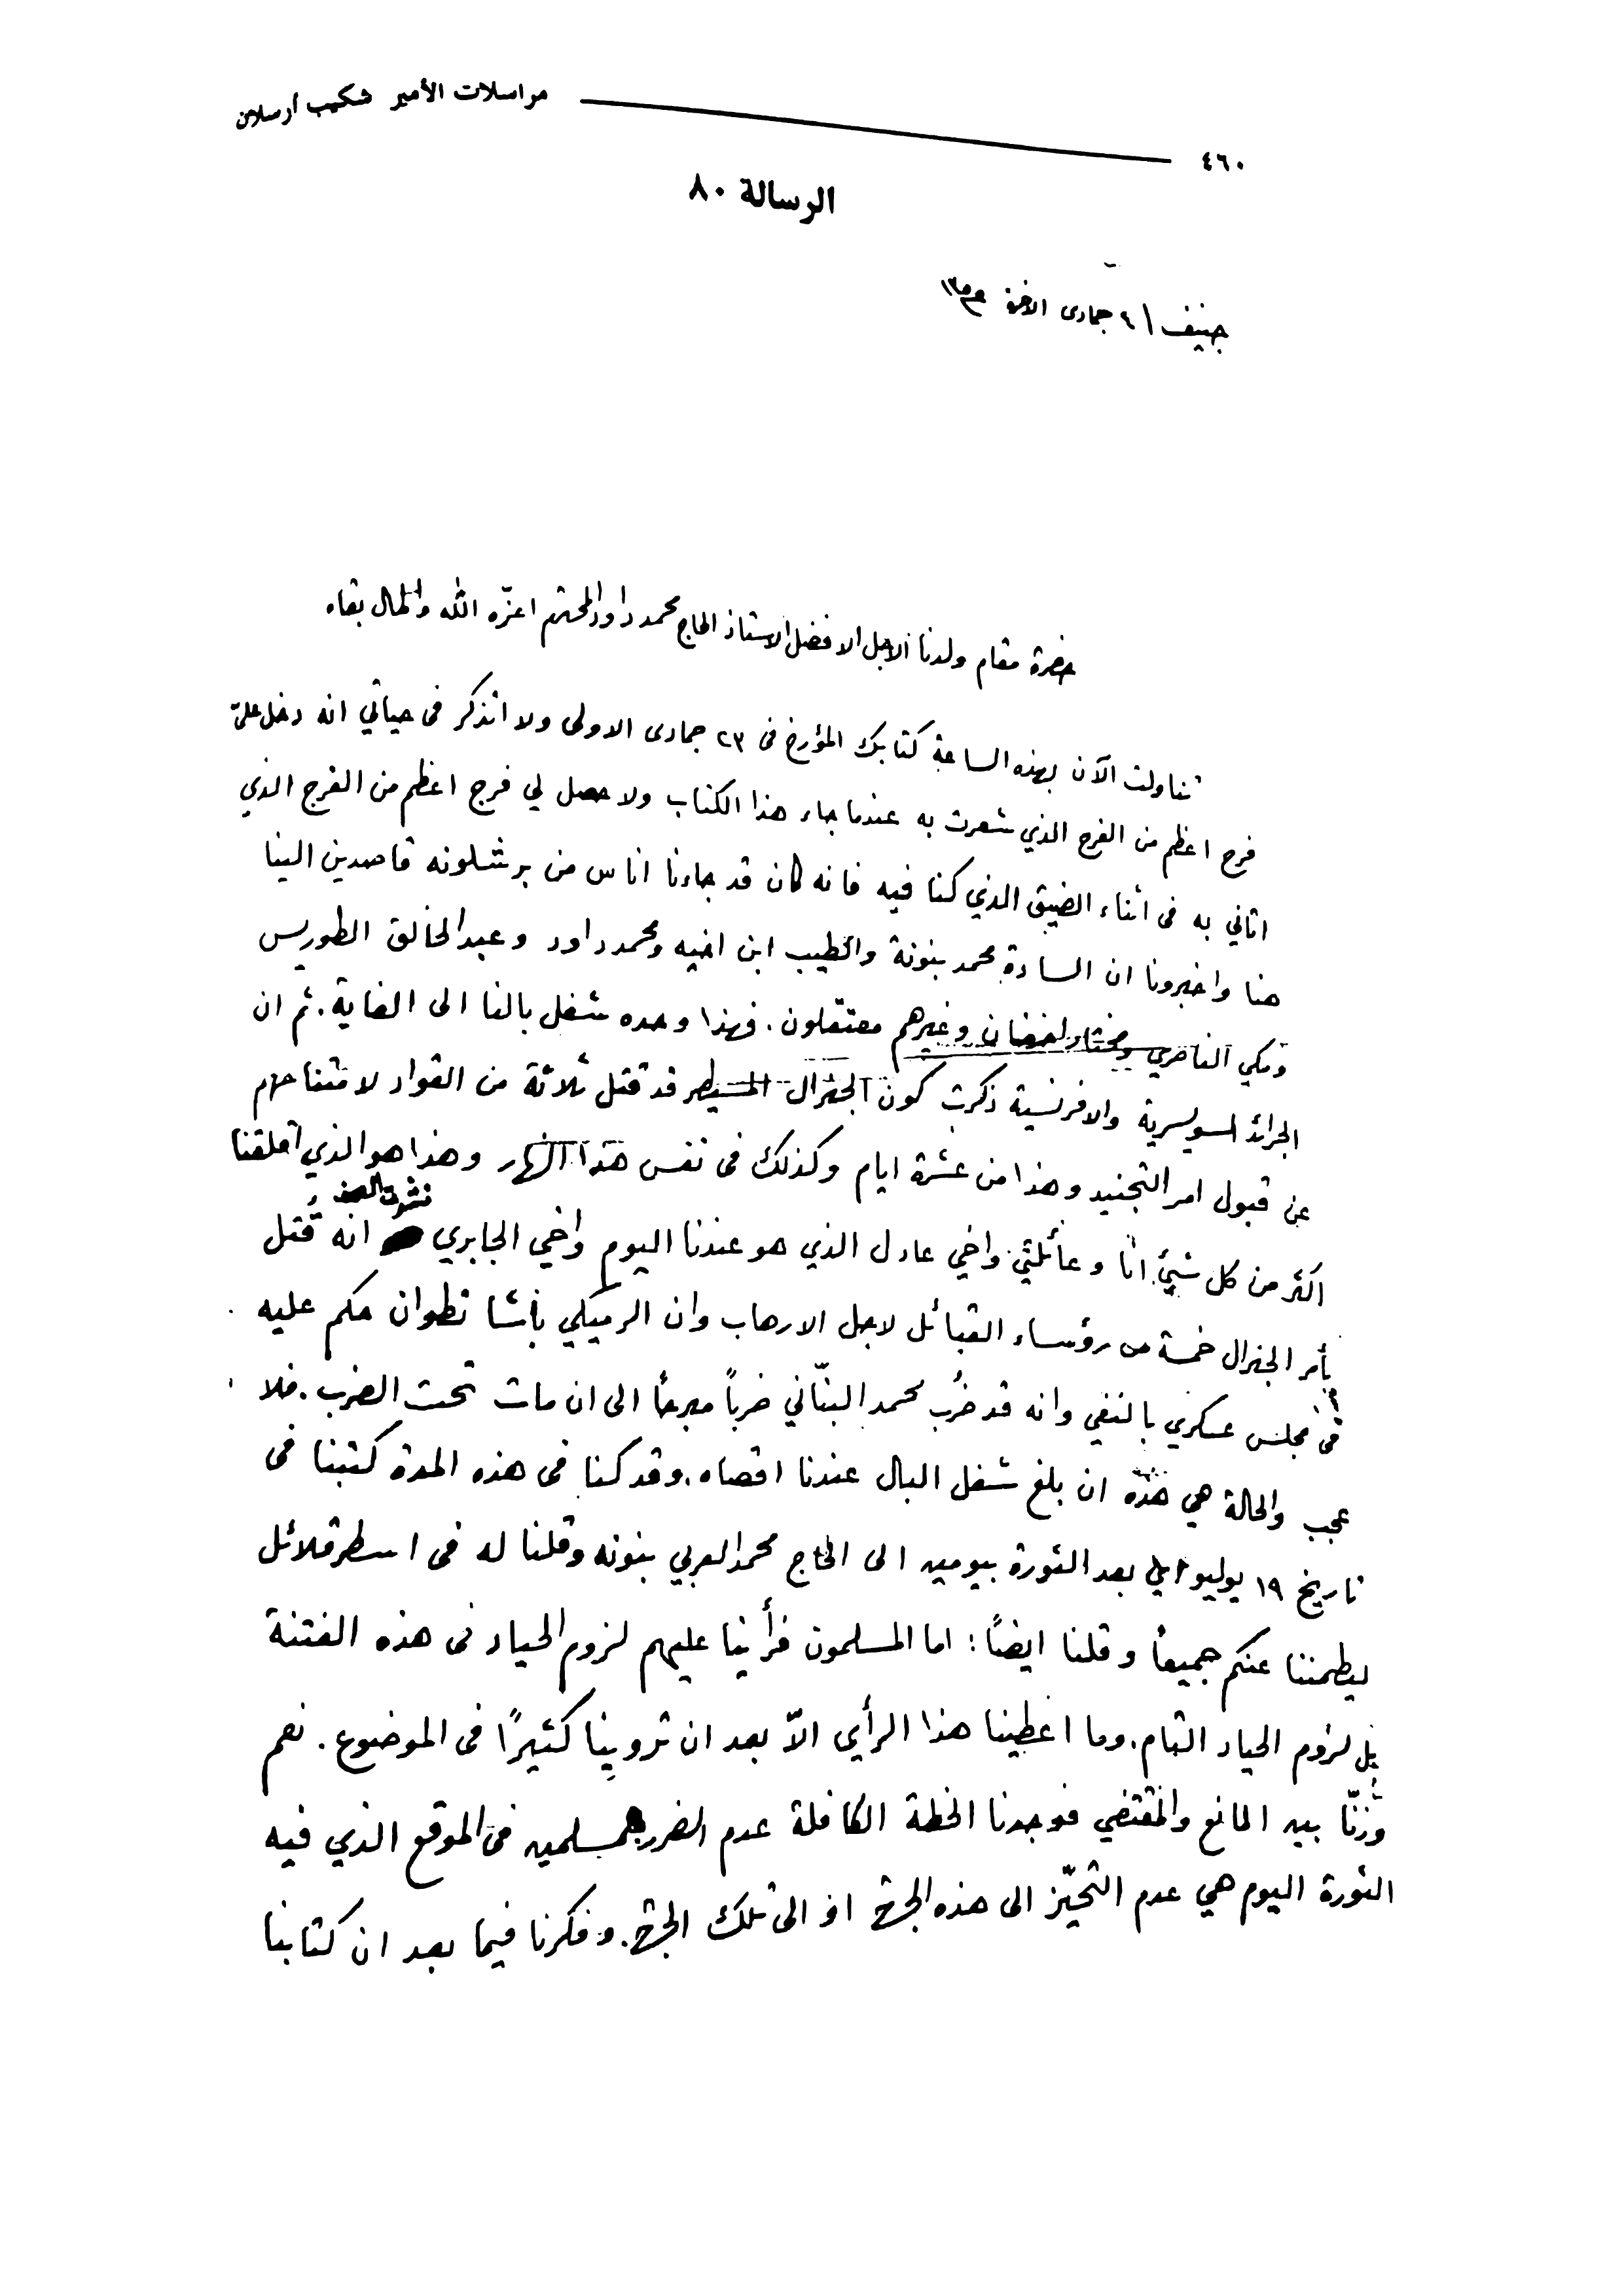 ٤٦٠ مراسلات الأمير شكيب أرسلان
الرسالة ٨٠
جنيف جمادى الآخرة
حضرة مقام ولدنا الاجل الافضل الاستاذ الحاج محمد داود المحترم اعزّه الله واطال بقاه
تناولت الآن بهذه الساعة كتابك المؤرخ في ٢٣ جمادى الاولى ولا اتذكر في حياتي انه دخل عليّ
فرح اعظم من الفرح الذي شعرت به عندما جاء هذا الكتاب ولا حصل لي فرج اعظم من الفرج الذي
اتاني به في اثناء الضيق الذي كنا فيه فانه كان قد جاءنا اناس من برشلونه قاصدين الينا
هنا واخبرونا ان السادة محمد بنونة والطيب ابن اخيه ومحمد داود وعبد الخالق الطوريس
ومكي الناصري ومختار وغيرهم معتقلون. فهذا وحده شغل بالنا الى الغاية. ثم ان
الجرائد السويسرية والافرنسية ذكرت كون الجنرال المسيطر قد قتل ثلاثة من القواد لامتناعهم
عن قبول امر التجنيد وهذا من عشرة ايام وكذلك في نفس هذا النهار وهذا هو الذي اقلقنا
اكثر من كل شيئ انا وعائلتي واخي عادل الذي هو عندنا اليوم واخي الجابري نشرت الصحف انه قُتل
بأمر الجنرال خمسة من رؤساء القبائل لاجل الارهاب وان الرميكي باشا تطوان حكم عليه
في مجلس عسكري بالنفي وانه قد ضُرب محمد البنّاني ضرباً مبرحاً الى ان مات تحت الضرب. فلا
عجب والحالة هي هذه ان بلغ شغل البال عندنا اقصاه. وقد كنا في هذه المدة كتبنا في
تاريخ ١٩ يوليو اي بعد الثورة بيومين الى الحاج محمد العربي بنونه وقلنا له في اسطر قلائل
ليطمننا عنكم جميعاً وقلنا ايضاً: اما المسلمون فرأينا عليهم لزوم الحياد في هذه الفتنة
بل لزوم الحياد التام. وما اعطينا هذا الرأي الاّ بعد ان تروينا كثيرًا في الموضوع. نعم
وزنّا بين المانع والمقتضي فوجدنا الخطة الكافلة عدم الضرر للمسلمين في الموقع الذي فيه
الثورة اليوم هي عدم التحيّز الى هذه الجهة او الى تلك الجهة. وفكرنا فيما بعد ان كتابنا